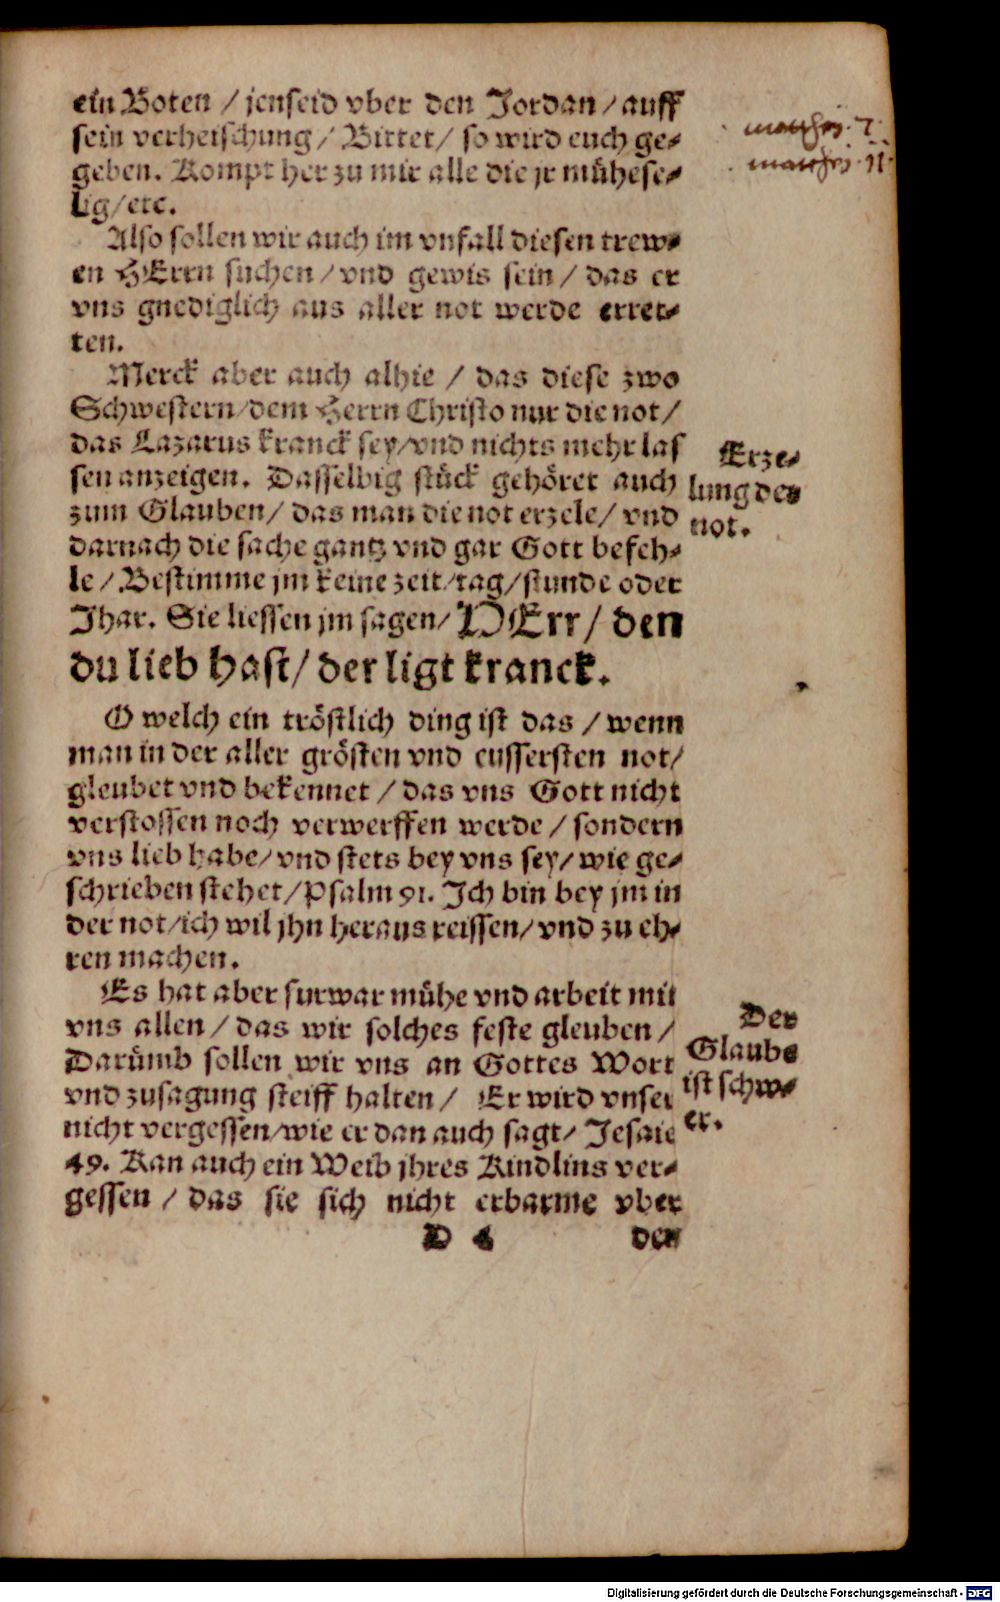 ein Boten / jenseid vber den Jordan / auff
sein verheischung / Bittet / so wird euch ge-
geben. Kompt her zu mir alle die jr mühese-
lig / etc.
matthej. 7.
matthej 11.
Also sollen wir auch im vnfall diesen trew-
en HErrn suchen / vnd gewis sein / das er
vns gnediglich aus aller not werde erret-
ten.
Merck aber auch alhie / das diese zwo
Schwestern / dem Herrn Christo nur die not /
das Lazarus kranck sey / vnd nichts mehr las
sen anzeigen. Dasselbig stück gehöret auch
zum Glauben / das man die not erzele / vnd
darnach die sache gantz vnd gar Gott befeh-
le / Bestimme jm keine zeit / tag / stunde oder
Jhar. Sie liessen jm sagen / HErr / den
du lieb hast / der ligt kranck.
Erze-
lung der
not.
O welch ein tröstlich ding ist das / wenn
man in der aller grösten vnd eussersten not /
gleubet vnd bekennet / das vns Gott nicht
verstossen noch verwerffen werde / sondern
vns lieb habe / vnd stets bey vns sey / wie ge-
schrieben stehet / Psalm 91. Ich bin bey jm in
der not / ich wil jhn heraus reissen / vnd zu eh-
ren machen.
Es hat aber furwar mühe vnd arbeit mit
vns allen / das wir solches feste gleuben /
Darümb sollen wir vns an Gottes Wort
vnd zusagung steiff halten / Er wird vnser
nicht vergessen / wie er dan auch sagt / Jesaie
49. Kan auch ein Weib jhres Kindlins ver-
gessen / das sie sich nicht erbarme vber
Der
Glaube
ist schw-
er.
D 4 den
Digitalisierung gefördert durch die Deutsche Forschungsgemeinschaft - DFG